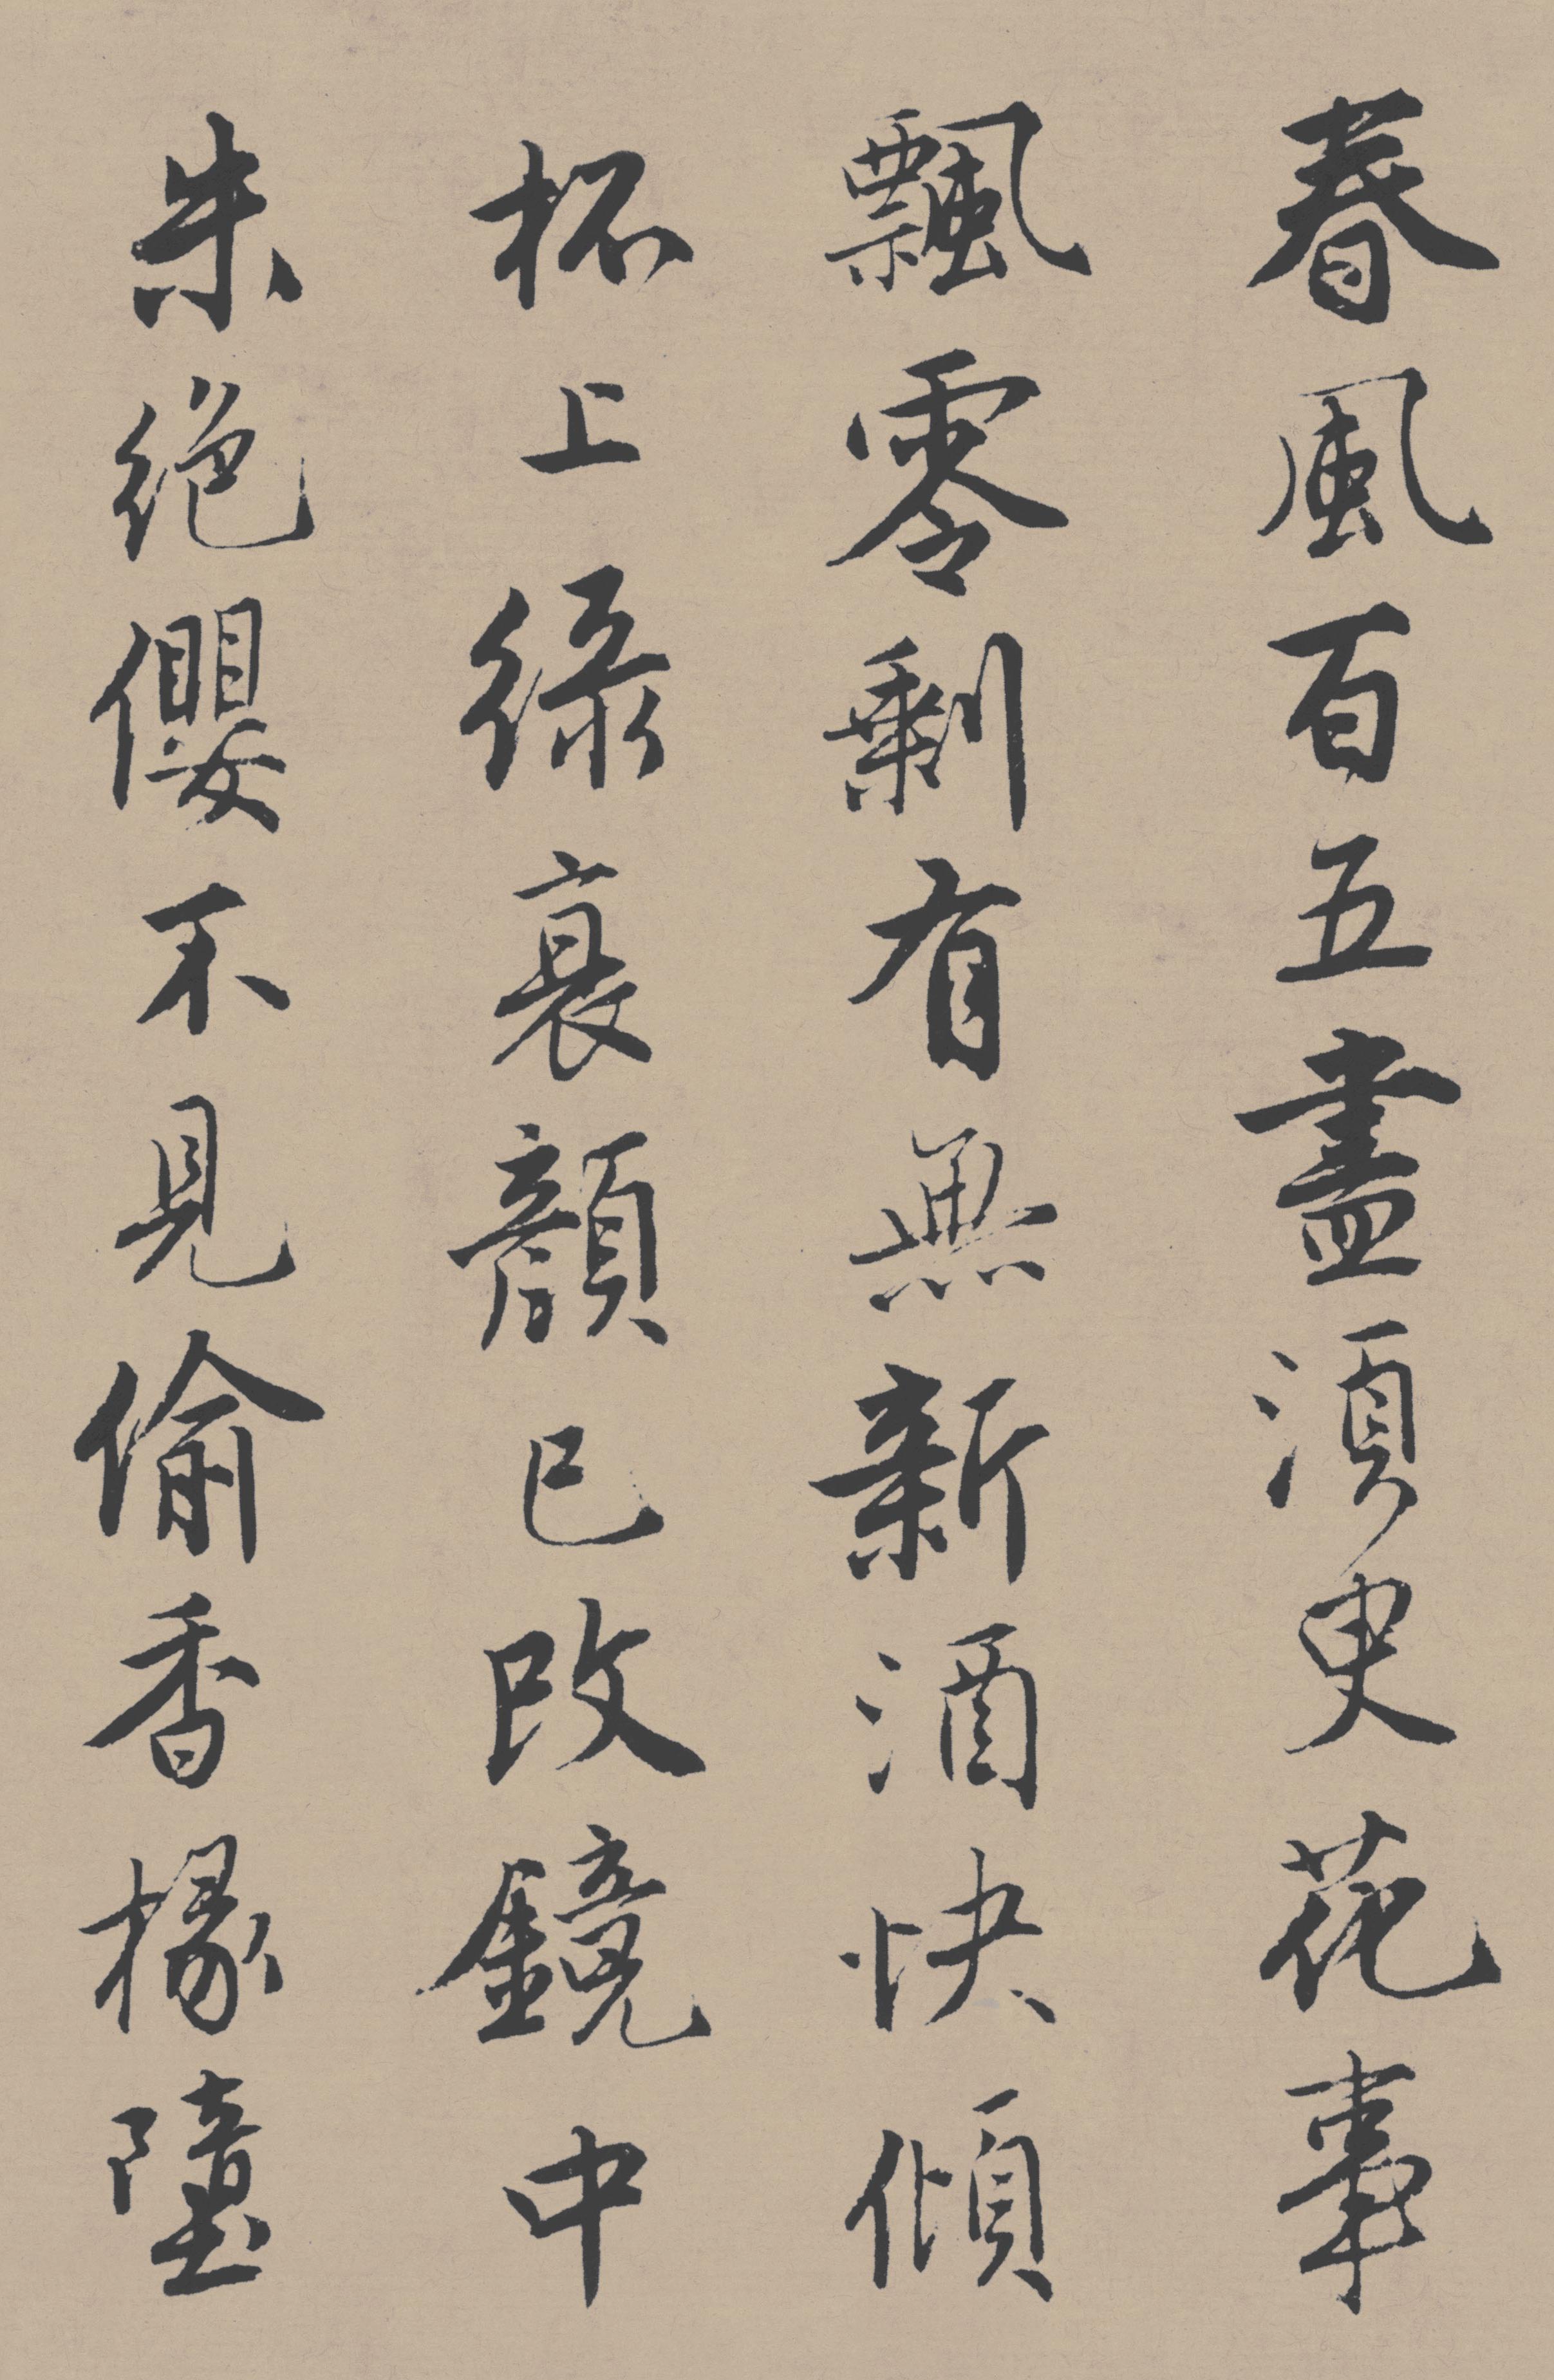 春風百五盡須臾花事
飄零剩有無新酒快傾
杯上綠衰顏已改鏡中
朱絕纓不見偷香掾墮